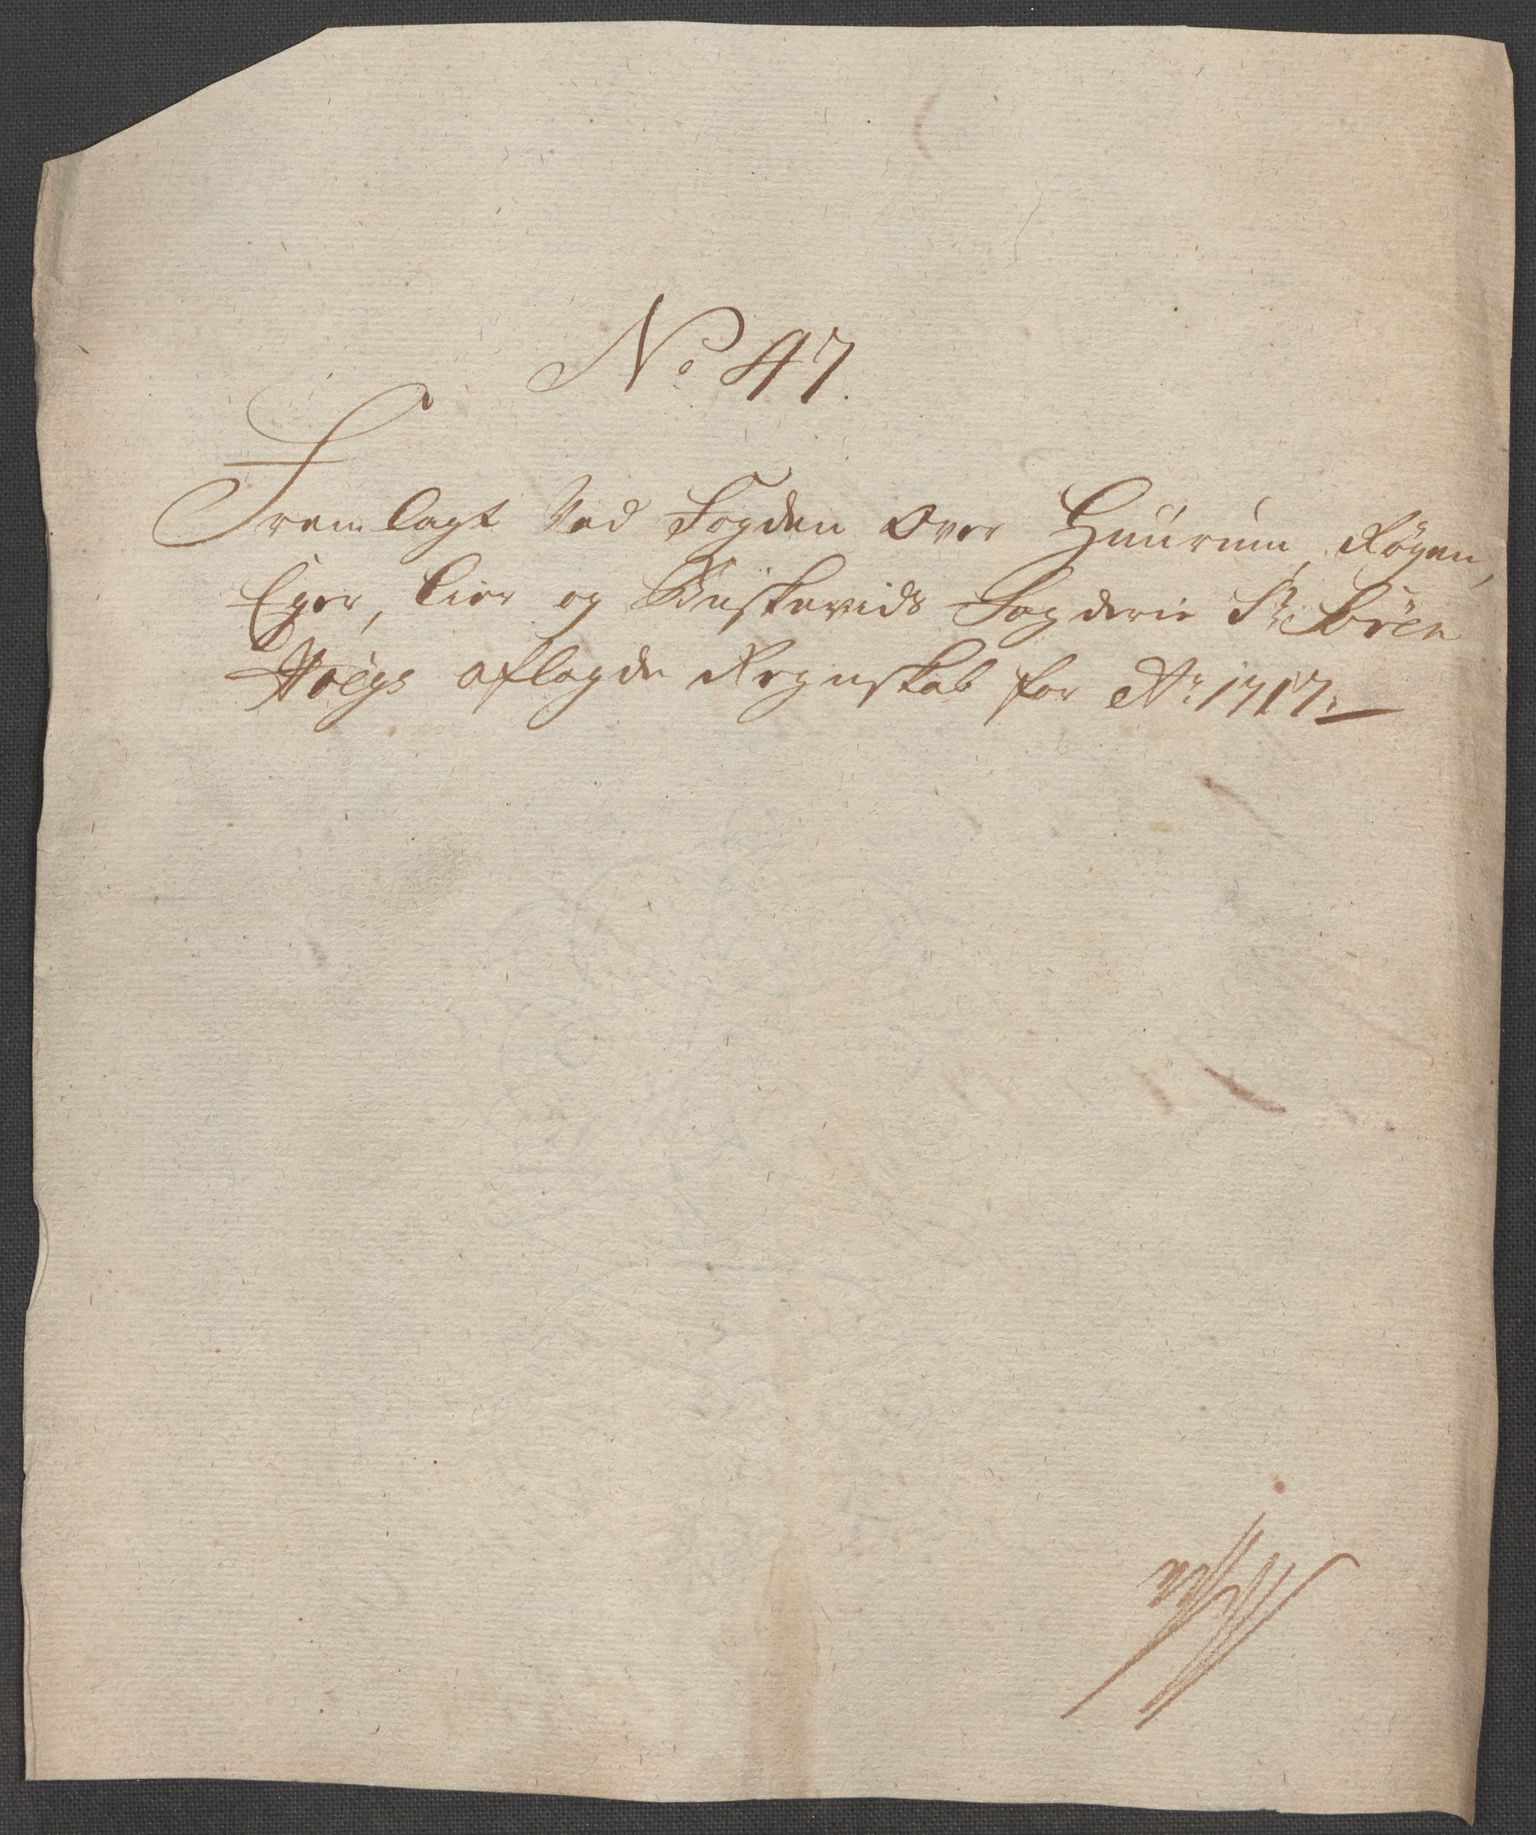 No 47.
Fremlagt Ved Fogden Over Huurum, Røgen,
Eger, Lier og Buskeruds Fogderie Sr Sören
Hoegs aflagde Regnskab for Ao: 1717.